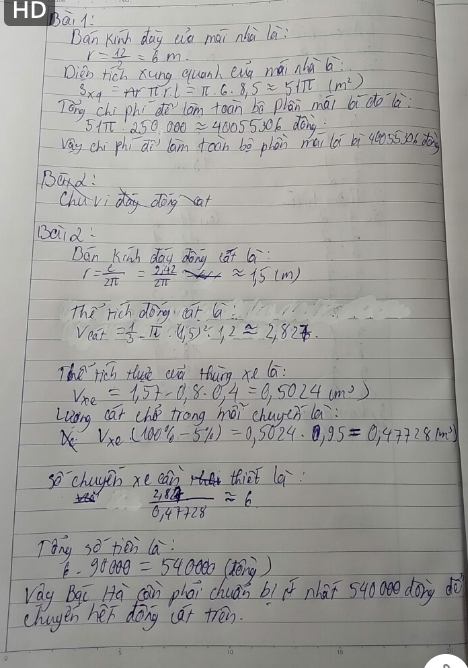 HD
Bài 1:
Bán kính đáy của mái nhà là:
r = 12/2 = 6 m.
Diện tích xung quanh của mái nhà là:
Sxq = π r.l = π . 6 . 8,5 ≈ 51π (m²)
Tổng chi phí để làm toàn bộ phần mái lá đó là:
51π . 250 000 ≈ 40055306 đồng.
Vậy chi phí để làm toàn bộ phần mái lá là 40055306 đồng
Bài 2:
Chu vi đáy đống cát
Bài 2:
Bán kính đáy đống cát là:
r = c/2π = /2π ≈ 1,5 (m)
Thể tích đống cát là:
Vcát = 1/3 . π . (1,5)² . 1,2 ≈ 2,827
Thể tích thực của thùng xe là:
Vxe = 1,57 . 0,8 . 0,4 = 0,5024 (m³)
Lượng cát chở trong mỗi chuyến là:
Vxe . (100% - 5%) = 0,5024 . 0,95 = 0,47728 (m³)
Số chuyến xe cần thiết là:
2,827/0,47728 ≈ 6
Tổng số tiền là:
6 . 90000 = 540000 (đồng)
Vậy Bác Hà cần phải chuẩn bị ít nhất 540 000 đồng để
chuyển hết đống cát trên.